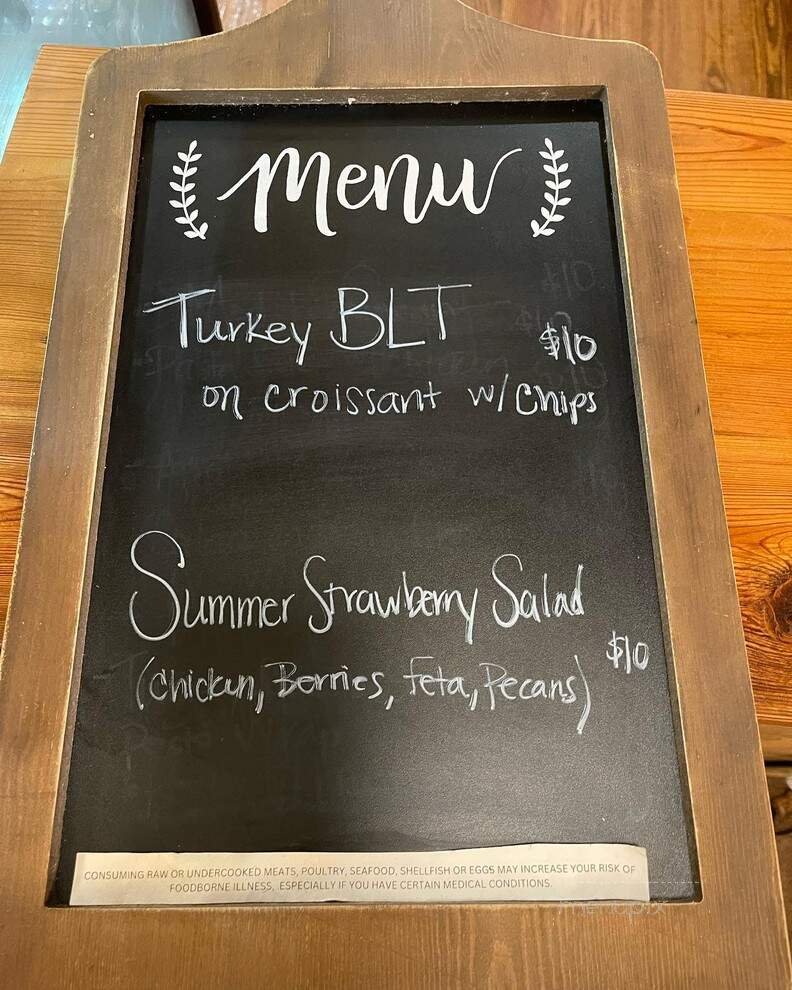 Menu
Turkey BLT
$10
on croissant w/ Chips
Summer Strawberry Salad
$10
(Chicken, Berries, feta, Pecans)
CONSUMING RAW OR UNDERCOOKED MEATS, POULTRY, SEAFOOD, SHELLFISH OR EGGS MAY INCREASE YOUR RISK OF
FOODBORNE ILLNESS, ESPECIALLY IF YOU HAVE CERTAIN MEDICAL CONDITIONS.